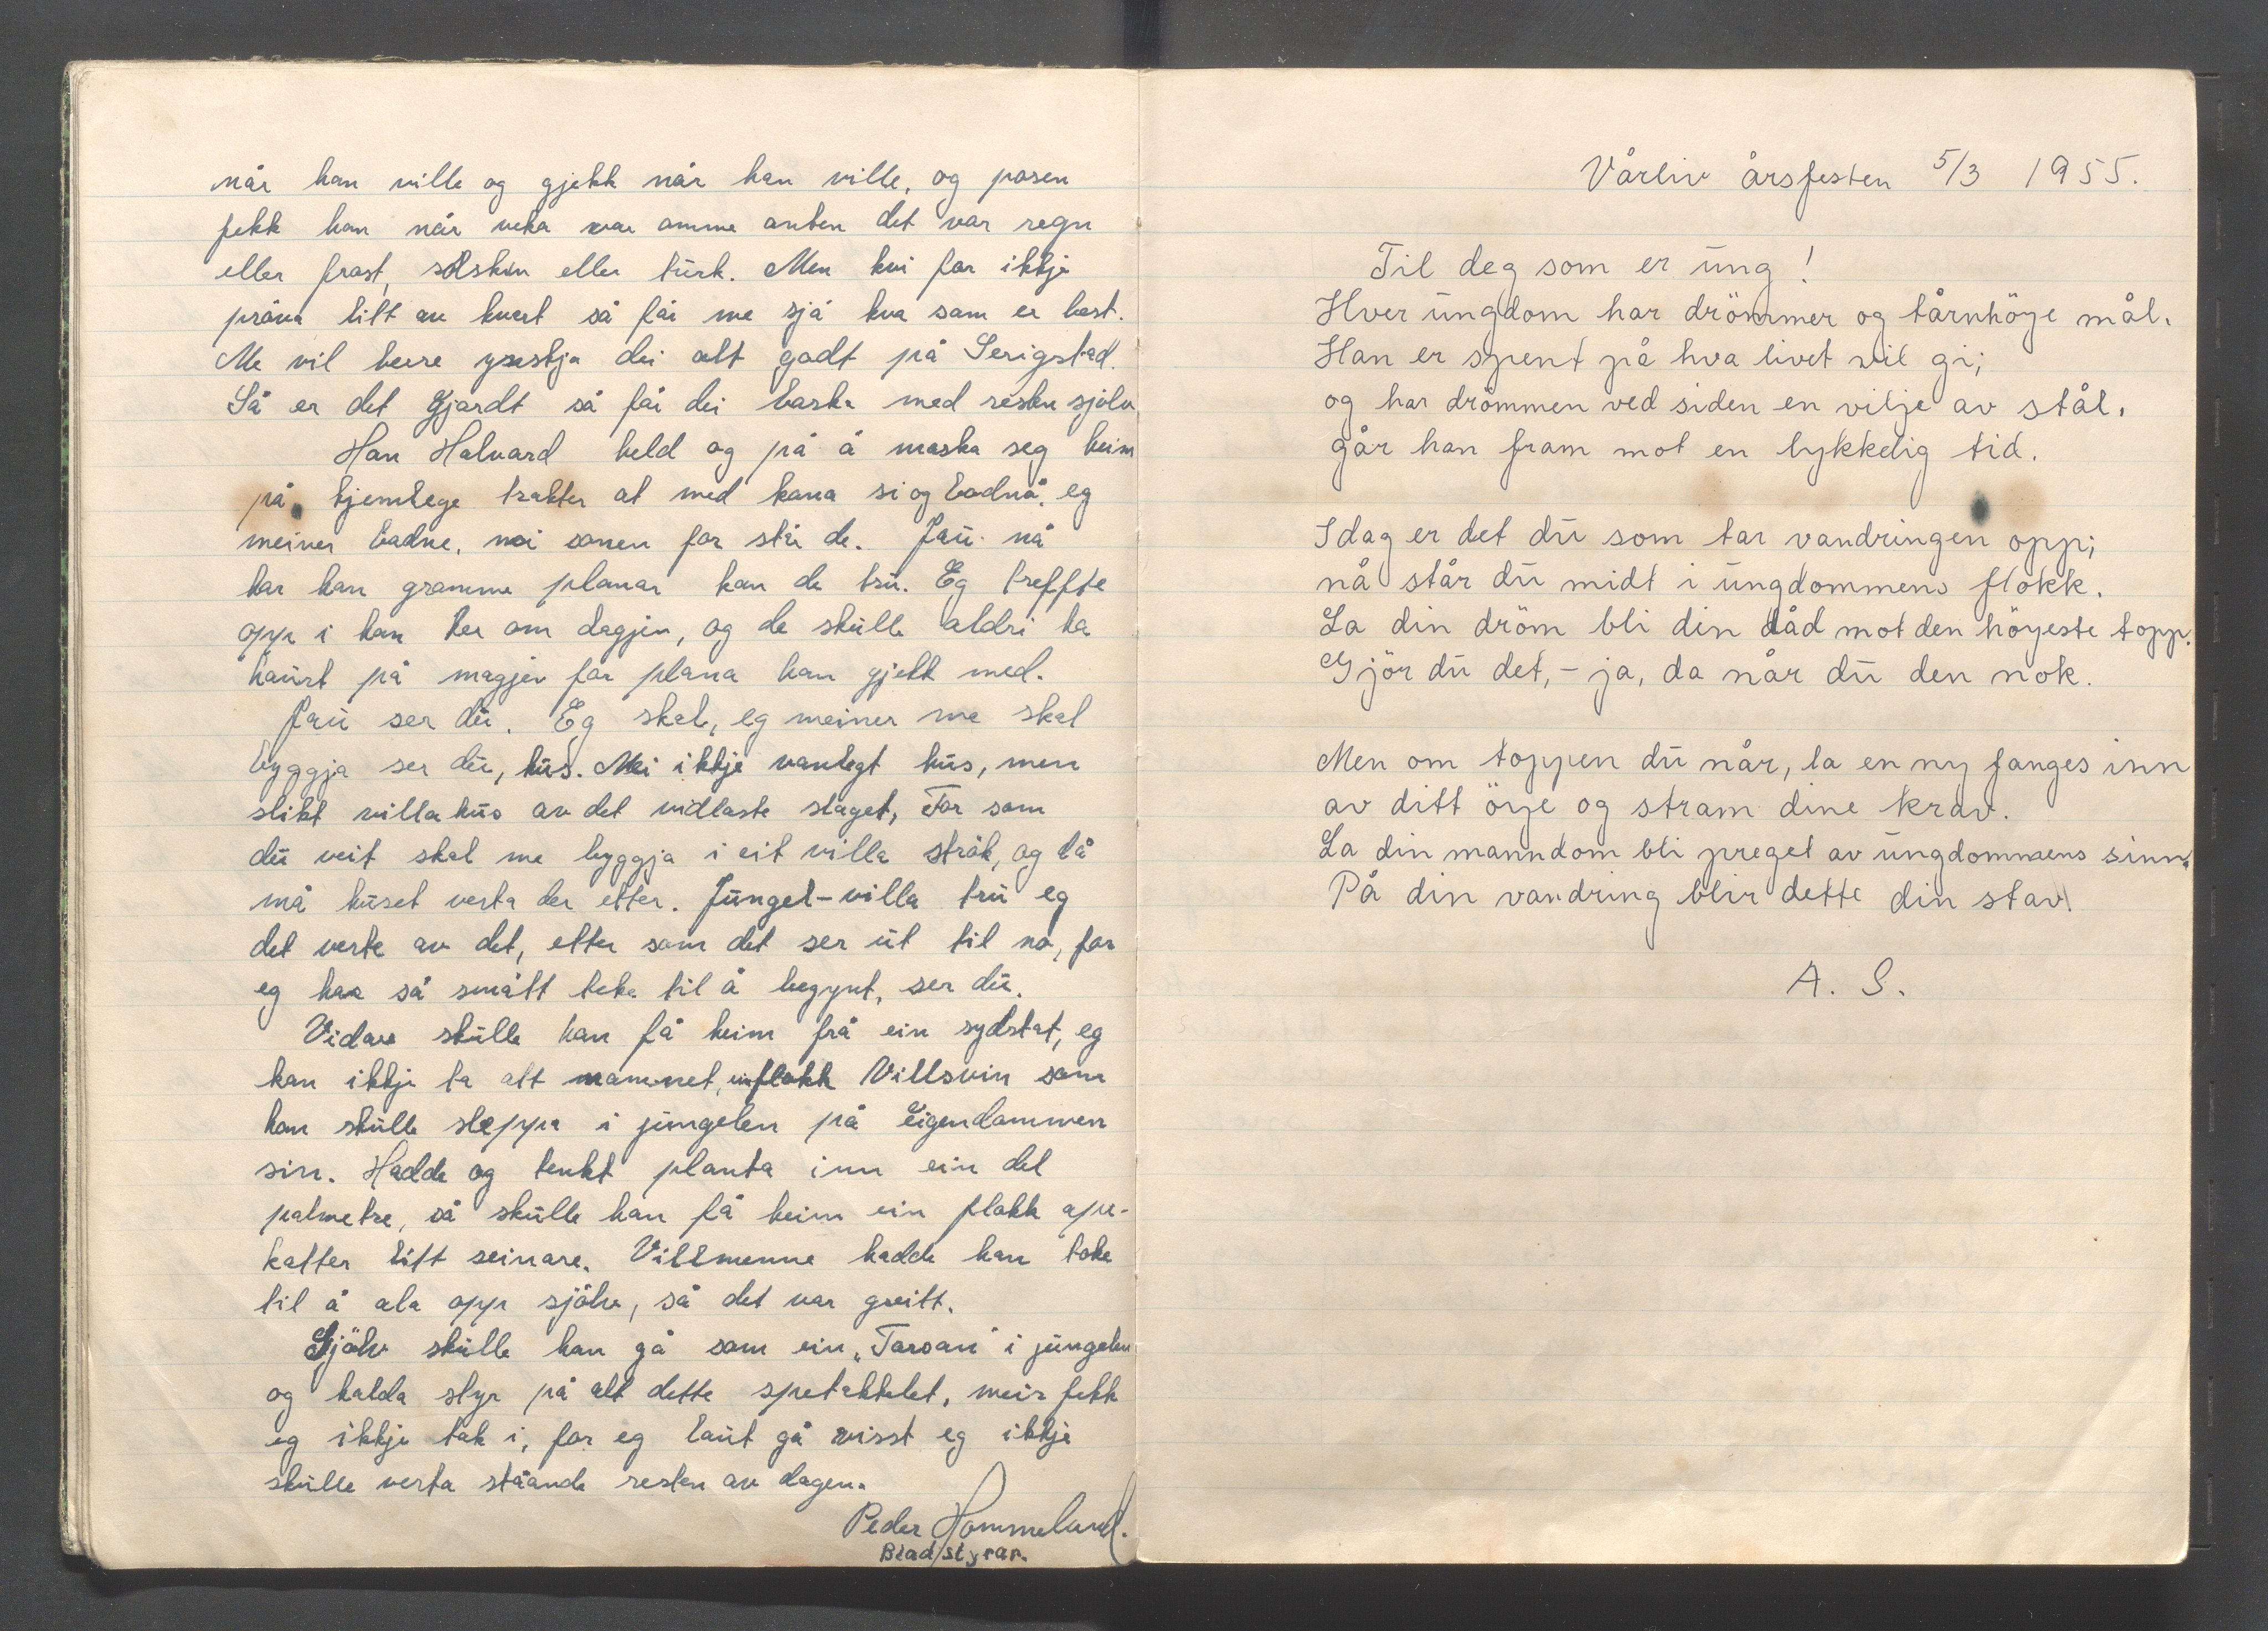 når han ville og gjekk når han ville, og posen
fekk han når veka var omme anten det var regn
eller frost, solskin eller turk. Men kvi for ikkje
pröva litt av kvert så får me sjå kva som er best.
Me vil berre ynskja dei alt godt på Serigstad.
Så er det gjordt så får dei baska med resten sjölv
Han Halvard held og på å maska seg heim
på hjemlege trakter at med kana si og
meiner nei sonen for stå de. Jau nå
har han gromme planar kan de tru. Eg treffte
opp i han her om dagjen, og de skulle aldri ha
haurt på magjen for plana han gjekk med.
Jau ser du. Eg skal, eg meiner me skal
byggja ser du, hus. Nei ikkje vanlegt hus, men
slikt villahus av det villaste slaget, For som
du veit skal me byggja i eit villa strök, og då
må huset verta der etter. Jungel-villa tru eg
det verte av det, etter som det ser ut til no, for
eg har så smått teke til å begynt, ser du.
Vidare skulle han få heim frå ein sydstat, eg
kan ikkje ta alt namnet, ein flokk Villsvin som
han skulle sleppa i jungelen på Eigendommen
sin. Hadde og tenkt planta inn ein del
palmetre, så skulle han få heim ein flokk ape-
katter litt seinare. Villmenne hadde han teke
til å ala opp sjölv, så det var greitt.
Sjölv skulle han gå som ein „Tarsan" i jungelen
og halda styr på alt dette spetakkelet, meir fekk
eg ikkje tak i, for eg laut gå visst eg ikkje
skulle verta ståande resten av dagen.
Peder Hommeland.
Bladstyrar.
Vårliv årsfesten 5/3 1955.
Til deg som er ung!
Hver ungdom har drömmer og tårnhöye mål.
Han er spent på hva livet vil gi;
og har drömmen ved siden en vilje av stål.
går han fram mot en lykkelig tid.
Idag er det du som tar vandringen opp;
nå står du midt i ungdommens flokk.
La din dröm bli din dåd mot den höyeste topp.
Gjör du det, - ja, da når du den nok.
Men om toppen du når, la en ny fanges inn
av ditt öye og stram dine krav.
La din manndom bli preget av ungdommens sinn.
På din vandring blir dette din stav.
A. S.